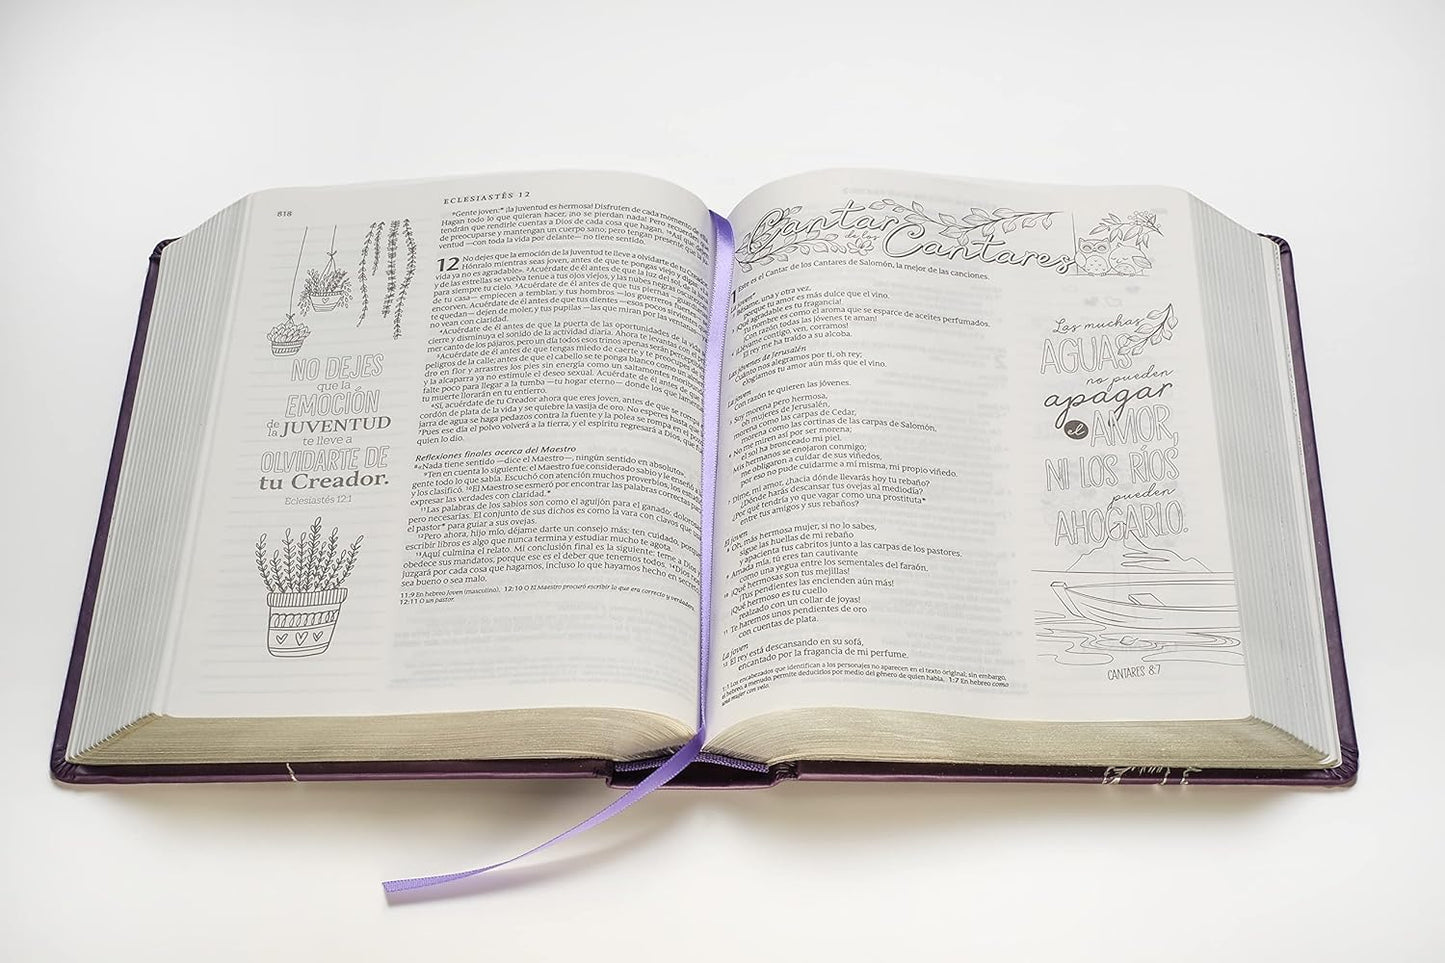 818
ECLESIASTÉS 12
NO DEJES
que la
EMOCIÓN
de la JUVENTUD
te lleve a
OLVIDARTE DE
tu Creador.
Eclesiastés 12:1
⁹Gente joven:* ¡la juventud es hermosa! Disfruten de cada momento de
Hagan todo lo que quieran hacer, ¡no se pierdan nada! Pero recuerden
tendrán que rendirle cuentas a Dios de cada cosa que hagan. ¹⁰Así que
de preocuparse y mantengan un cuerpo sano; pero tengan presente que la
ventud —con toda la vida por delante— no tiene sentido.
12 No dejes que la emoción de la juventud te lleve a olvidarte de tu
Hónralo mientras seas joven, antes de que te pongas viejo y
vida ya no es agradable». ²Acuérdate de él antes de que la luz del sol, de
y de las estrellas se vuelva tenue a tus ojos viejos, y las nubes negras
para siempre tu cielo. ³Acuérdate de él antes de que tus piernas
de tu casa— empiecen a temblar, y tus hombros —los guerreros
encorven. Acuérdate de él antes de que tus dientes —esos pocos sirvientes
te quedan— dejen de moler, y tus pupilas —las que miran por las ventanas
no vean con claridad.
⁴Acuérdate de él antes de que la puerta de las oportunidades de la vida
cierre y disminuya el sonido de la actividad diaria. Ahora te levantas con el
mer canto de los pájaros, pero un día todos esos trinos apenas serán
⁵Acuérdate de él antes de que tengas miedo de caerte y te preocupes
peligros de la calle; antes de que el cabello se te ponga blanco como un
dro en flor y arrastres los pies sin energía como un saltamontes
y la alcaparra ya no estimule el deseo sexual. Acuérdate de él antes de
falte poco para llegar a la tumba —tu hogar eterno— donde los que
tu muerte llorarán en tu entierro.
⁶Sí, acuérdate de tu Creador ahora que eres joven, antes de que se rompa
cordón de plata de la vida y se quiebre la vasija de oro. No esperes hasta
jarra de agua se haga pedazos contra la fuente y la polea se rompa en el
⁷Pues ese día el polvo volverá a la tierra, y el espíritu regresará a Dios, que
quien lo dio.
Reflexiones finales acerca del Maestro
⁸«Nada tiene sentido —dice el Maestro—, ningún sentido en absoluto».
⁹Ten en cuenta lo siguiente: el Maestro fue considerado sabio y le enseñó a
gente todo lo que sabía. Escuchó con atención muchos proverbios, los
y los clasificó. ¹⁰El Maestro se esmeró por encontrar las palabras correctas
expresar las verdades con claridad.*
¹¹Las palabras de los sabios son como el aguijón para el ganado: dolorosas
pero necesarias. El conjunto de sus dichos es como la vara con clavos que
el pastor* para guiar a sus ovejas.
¹²Pero ahora, hijo mío, déjame darte un consejo más: ten cuidado, porque
escribir libros es algo que nunca termina y estudiar mucho te agota.
¹³Aquí culmina el relato. Mi conclusión final es la siguiente: teme a Dios
obedece sus mandatos, porque ese es el deber que tenemos todos. ¹⁴Dios
juzgará por cada cosa que hagamos, incluso lo que hayamos hecho en secreto,
sea bueno o sea malo.
11:9 En hebreo Joven (masculino). 12:10 O El Maestro procuró escribir lo que era correcto y verdadero.
12:11 O un pastor.
Cantar
de los
Cantares
1 Este es el Cantar de los Cantares de Salomón, la mejor de las canciones.
La joven*
² Bésame, una y otra vez,
porque tu amor es más dulce que el vino.
³ ¡Qué agradable es tu fragancia!
Tu nombre es como el aroma que se esparce de aceites perfumados.
¡Con razón todas las jóvenes te aman!
⁴ ¡Llévame contigo, ven, corramos!
El rey me ha traído a su alcoba.
Las jóvenes de Jerusalén
Cuánto nos alegramos por ti, oh rey;
elogiamos tu amor aún más que el vino.
La joven
Con razón te quieren las jóvenes.
⁵ Soy morena pero hermosa,
oh mujeres de Jerusalén,
morena como las carpas de Cedar,
morena como las cortinas de las carpas de Salomón.
⁶ No me miren así por ser morena;
el sol ha bronceado mi piel.
Mis hermanos se enojaron conmigo;
me obligaron a cuidar de sus viñedos,
por eso no pude cuidarme a mí misma, mi propio viñedo.
⁷ Dime, mi amor, ¿hacia dónde llevarás hoy tu rebaño?
¿Dónde harás descansar tus ovejas al mediodía?
¿Por qué tendría yo que vagar como una prostituta*
entre tus amigos y sus rebaños?
El joven
⁸ Oh, más hermosa mujer, si no lo sabes,
sigue las huellas de mi rebaño
y apacienta tus cabritos junto a las carpas de los pastores.
⁹ Amada mía, tú eres tan cautivante
como una yegua entre los sementales del faraón.
¹⁰ ¡Qué hermosas son tus mejillas!
¡Tus pendientes las encienden aún más!
¡Qué hermoso es tu cuello
realzado con un collar de joyas!
¹¹ Te haremos unos pendientes de oro
con cuentas de plata.
La joven
¹² El rey está descansando en su sofá,
encantado por la fragancia de mi perfume.
1:1 Los encabezados que identifican a los personajes no aparecen en el texto original; sin embargo,
el hebreo, a menudo, permite deducirlos por medio del género de quien habla. 1:7 En hebreo como
una mujer con velo.
Las muchas
AGUAS
no pueden
apagar
el AMOR,
NI LOS RÍOS
pueden
AHOGARLO.
CANTARES 8:7